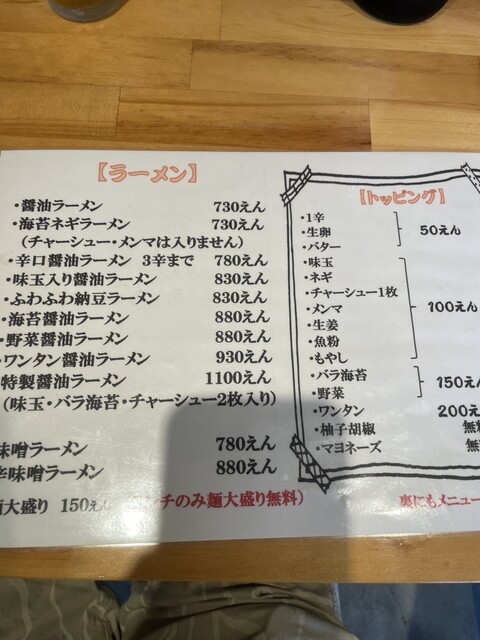 【ラーメン】
・醤油ラーメン 730えん
・海苔ネギラーメン 730えん
（チャーシュー・メンマは入りません）
・辛口醤油ラーメン 3辛まで 780えん
・味玉入り醤油ラーメン 830えん
・ふわふわ納豆ラーメン 830えん
・海苔醤油ラーメン 880えん
・野菜醤油ラーメン 880えん
・ワンタン醤油ラーメン 930えん
特製醤油ラーメン 1100えん
（味玉・バラ海苔・チャーシュー2枚入り）
味噌ラーメン 780えん
辛味噌ラーメン 880えん
大盛り 150えん
チのみ麺大盛り無料）
【トッピング】
・1辛
・生卵 50えん
・バター
・味玉
・ネギ
・チャーシュー1枚
・メンマ 100えん
・生姜
・魚粉
・もやし
・バラ海苔 150えん
・野菜
・ワンタン 200え
・柚子胡椒 無
・マヨネーズ 無
裏にもメニュー